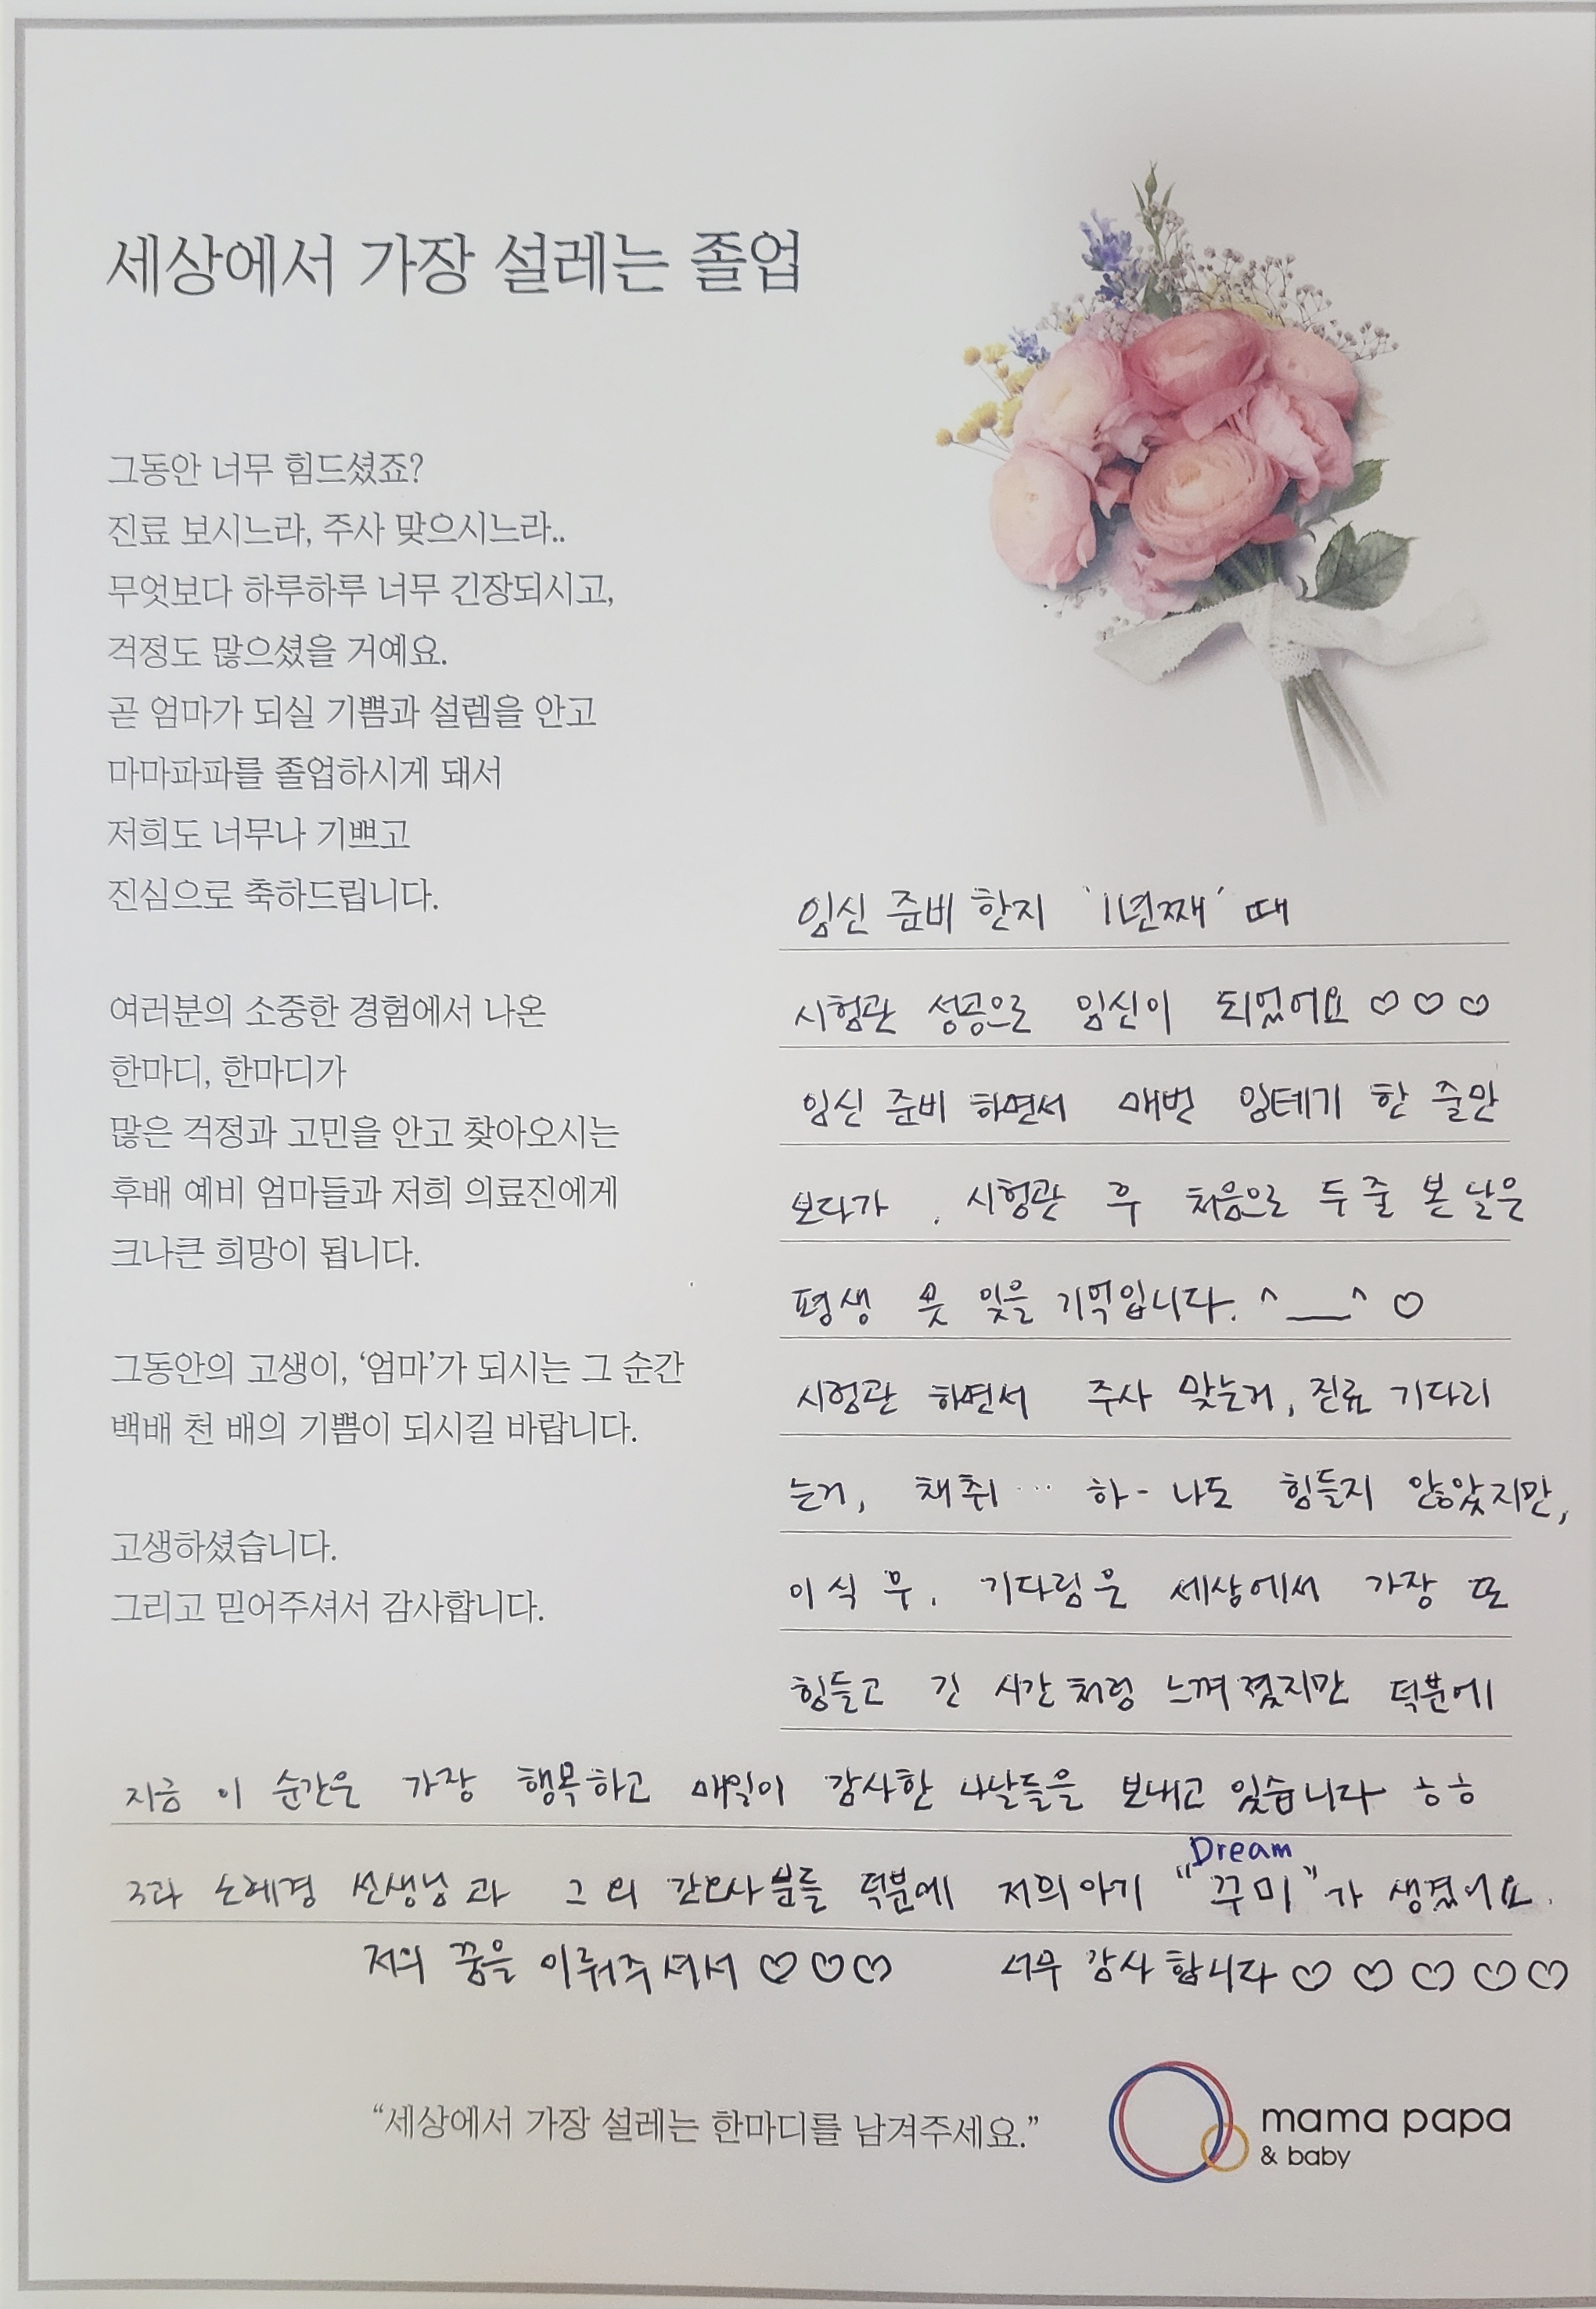 세상에서 가장 설레는 졸업
그동안 너무 힘드셨죠?
진료 보시느라, 주사 맞으시느라..
무엇보다 하루하루 너무 긴장되시고,
걱정도 많으셨을 거예요.
곧 엄마가 되실 기쁨과 설렘을 안고
마마파파를 졸업하시게 돼서
저희도 너무나 기쁘고
진심으로 축하드립니다.
여러분의 소중한 경험에서 나온
한마디, 한마디가
많은 걱정과 고민을 안고 찾아오시는
후배 예비 엄마들과 저희 의료진에게
크나큰 희망이 됩니다.
그동안의 고생이, ‘엄마’가 되시는 그 순간
백배 천 배의 기쁨이 되시길 바랍니다.
고생하셨습니다.
그리고 믿어주셔서 감사합니다.
임신 준비 한지 '1년째' 때
시험관 성공으로 임신이 되었어요 ♡ ♡ ♡
임신 준비 하면서 매번 임테기 한 줄만
보다가, 시험관 후 처음으로 두 줄 본 날은
평생 못 잊을 기억입니다. ^__^ ♡
시험관 하면서 주사 맞는거, 진료 기다리
는거, 채취 ... 하-나도 힘들지 않았지만,
이식 후, 기다림은 세상에서 가장 또
힘들고 긴 시간처럼 느껴졌지만 덕분에
지금 이 순간은 가장 행복하고 매일이 감사한 나날들을 보내고 있습니다 ㅎㅎ
Dream
3과 손혜경 선생님과 그 외 간호사분들 덕분에 저희아기 "꾸미"가 생겼어요.
저의 꿈을 이뤄주셔서 ♡♡♡ 너무 감사합니다 ♡ ♡ ♡ ♡ ♡
“세상에서 가장 설레는 한마디를 남겨주세요.”
mama papa
& baby